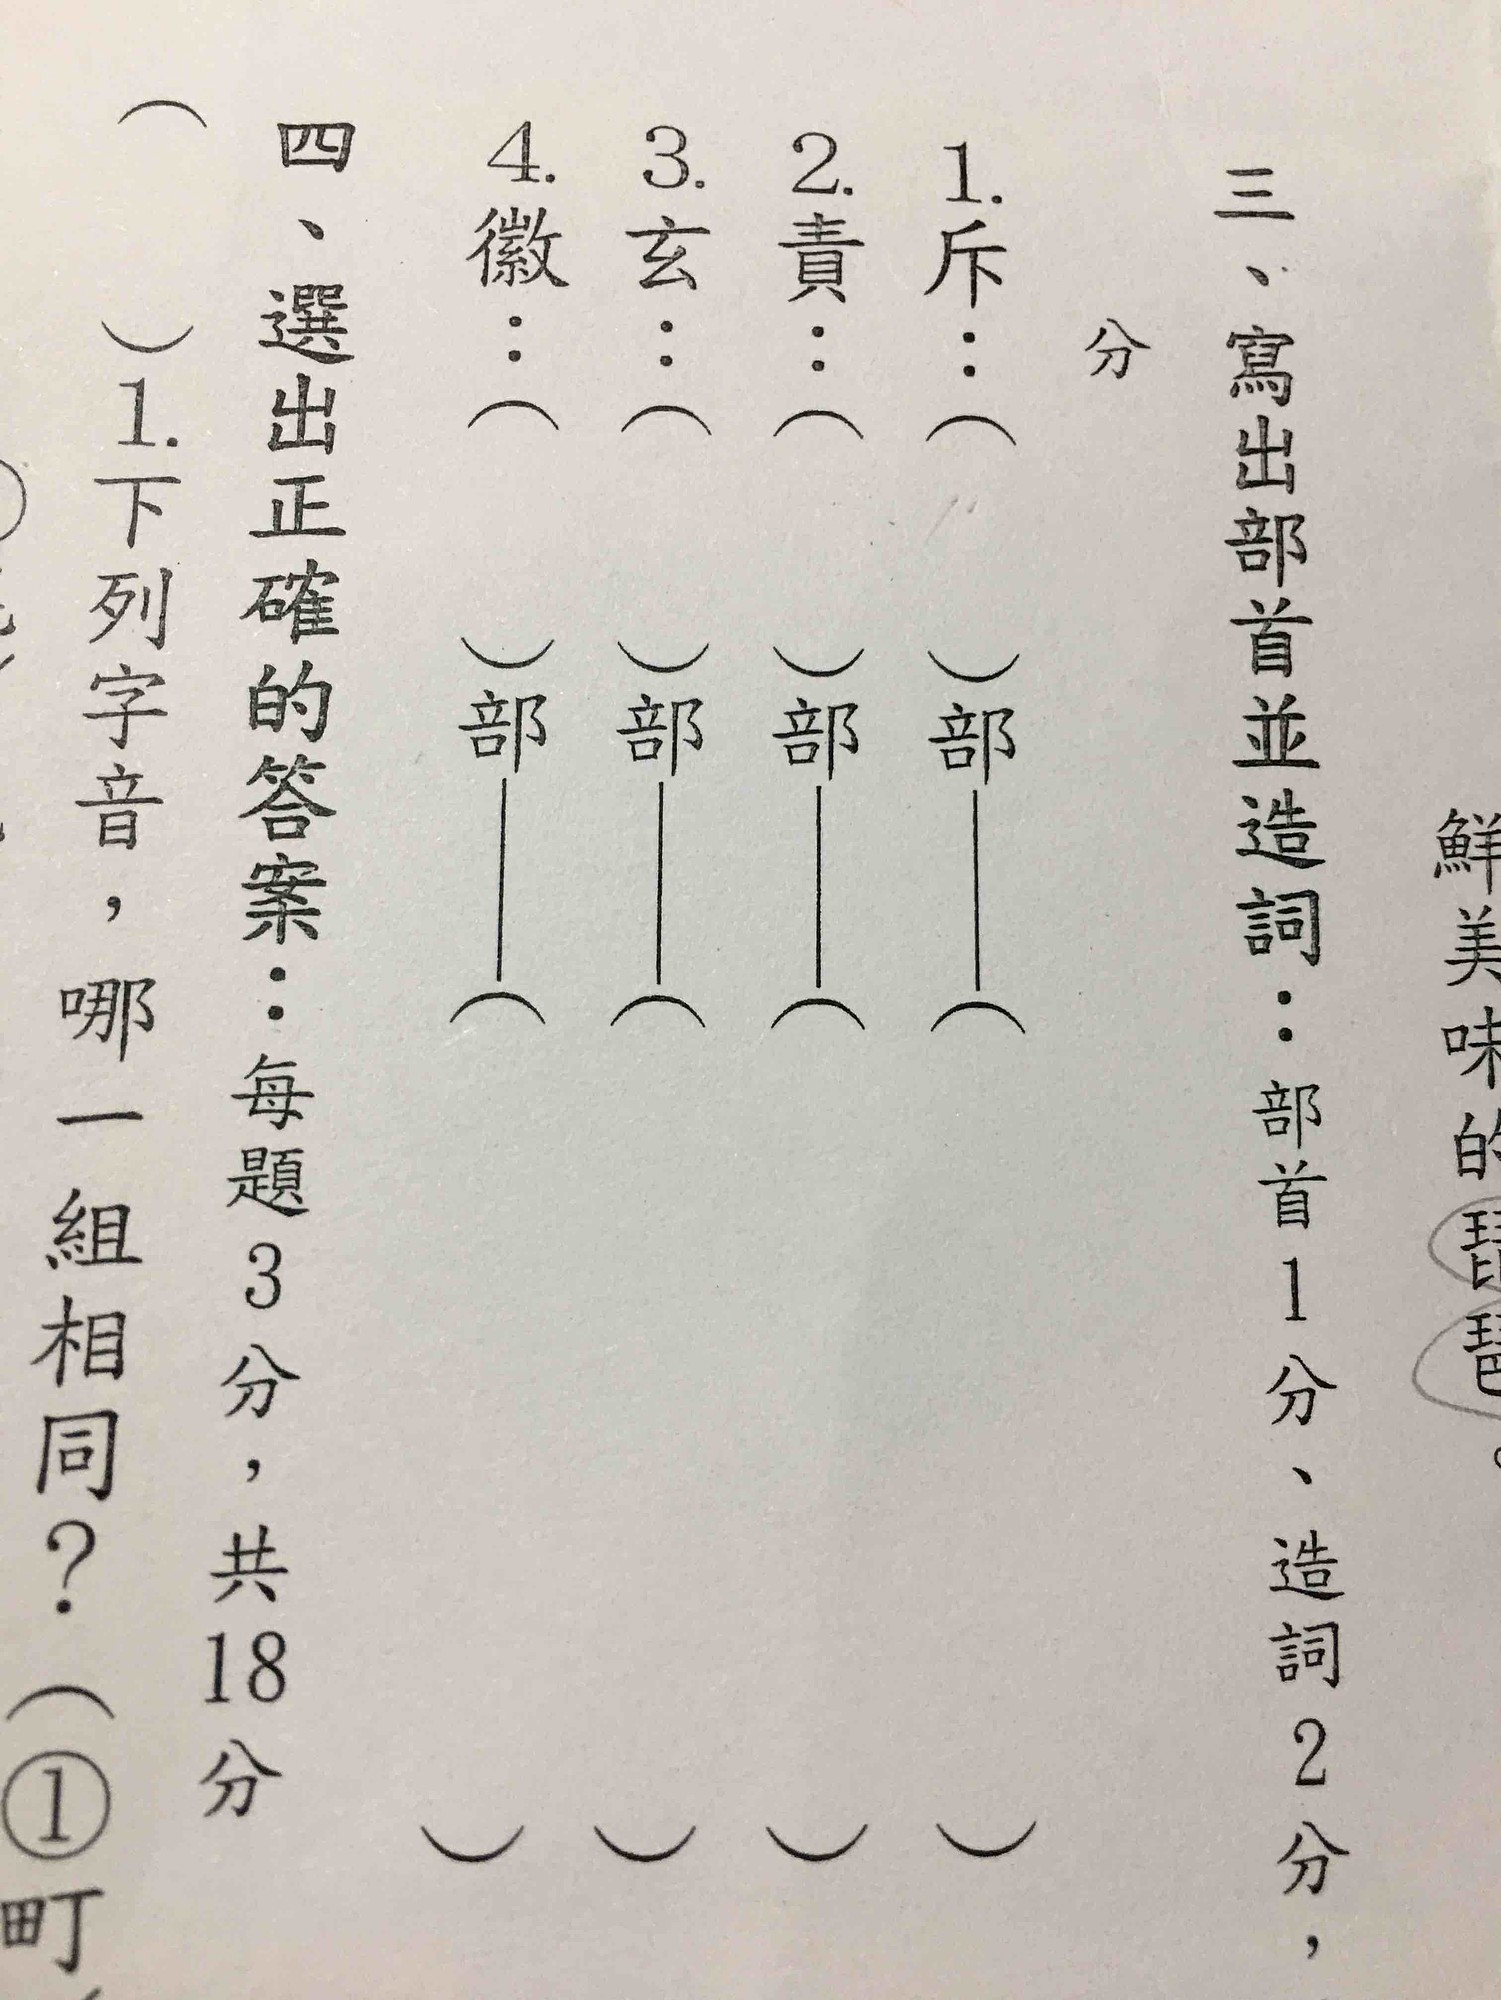 鮮美味的琵琶。
三、寫出部首並造詞：部首1分、造詞2分，
分
1.斥：（　　）部——（　　）
2.責：（　　）部——（　　）
3.玄：（　　）部——（　　）
4.徽：（　　）部——（　　）
四、選出正確的答案：每題3分，共18分
（　　）1.下列字音，哪一組相同？（①町